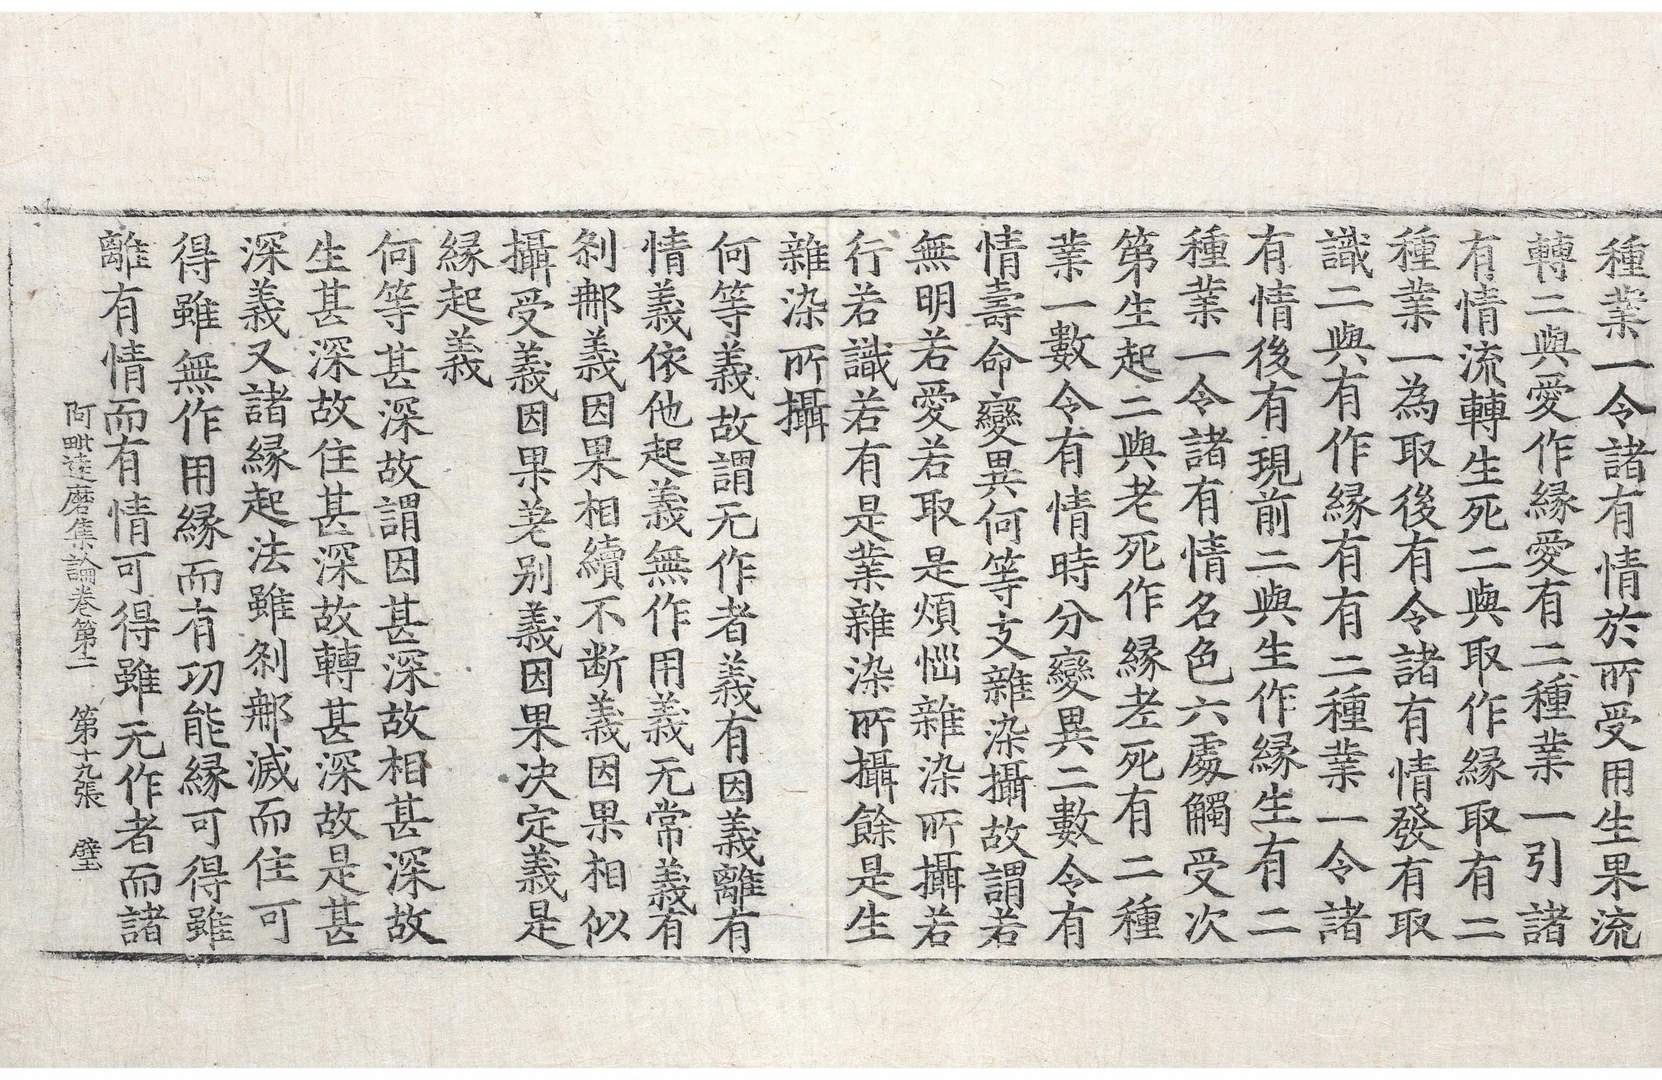 種業一令諸有情於所受用生果流
轉二與愛作縁愛有二種業一引諸
有情流轉生死二與取作縁取有二
種業一為取後有令諸有情發有取
識二與有作縁有有二種業一令諸
有情後有現前二與生作縁生有二
種業一令諸有情名色六處觸受次
第生起二與老死作縁老死有二種
業一數令有情時分變異二數令有
情壽命變異何等支雜染攝故謂若
無明若愛若取是煩惱雜染所攝若
行若識若有是業雜染所攝餘是生
雜染所攝
何等義故謂无作者義有因義離有
情義依他起義無作用義无常義有
刹那義因果相續不断義因果相似
攝受義因果差别義因果决定義是
縁起義
何等甚深故謂因甚深故相甚深故
生甚深故住甚深故轉甚深故是甚
深義又諸縁起法雖刹那滅而住可
得雖無作用縁而有功能縁可得雖
離有情而有情可得雖无作者而諸
阿毗達磨集論卷第二 第十九張 璧